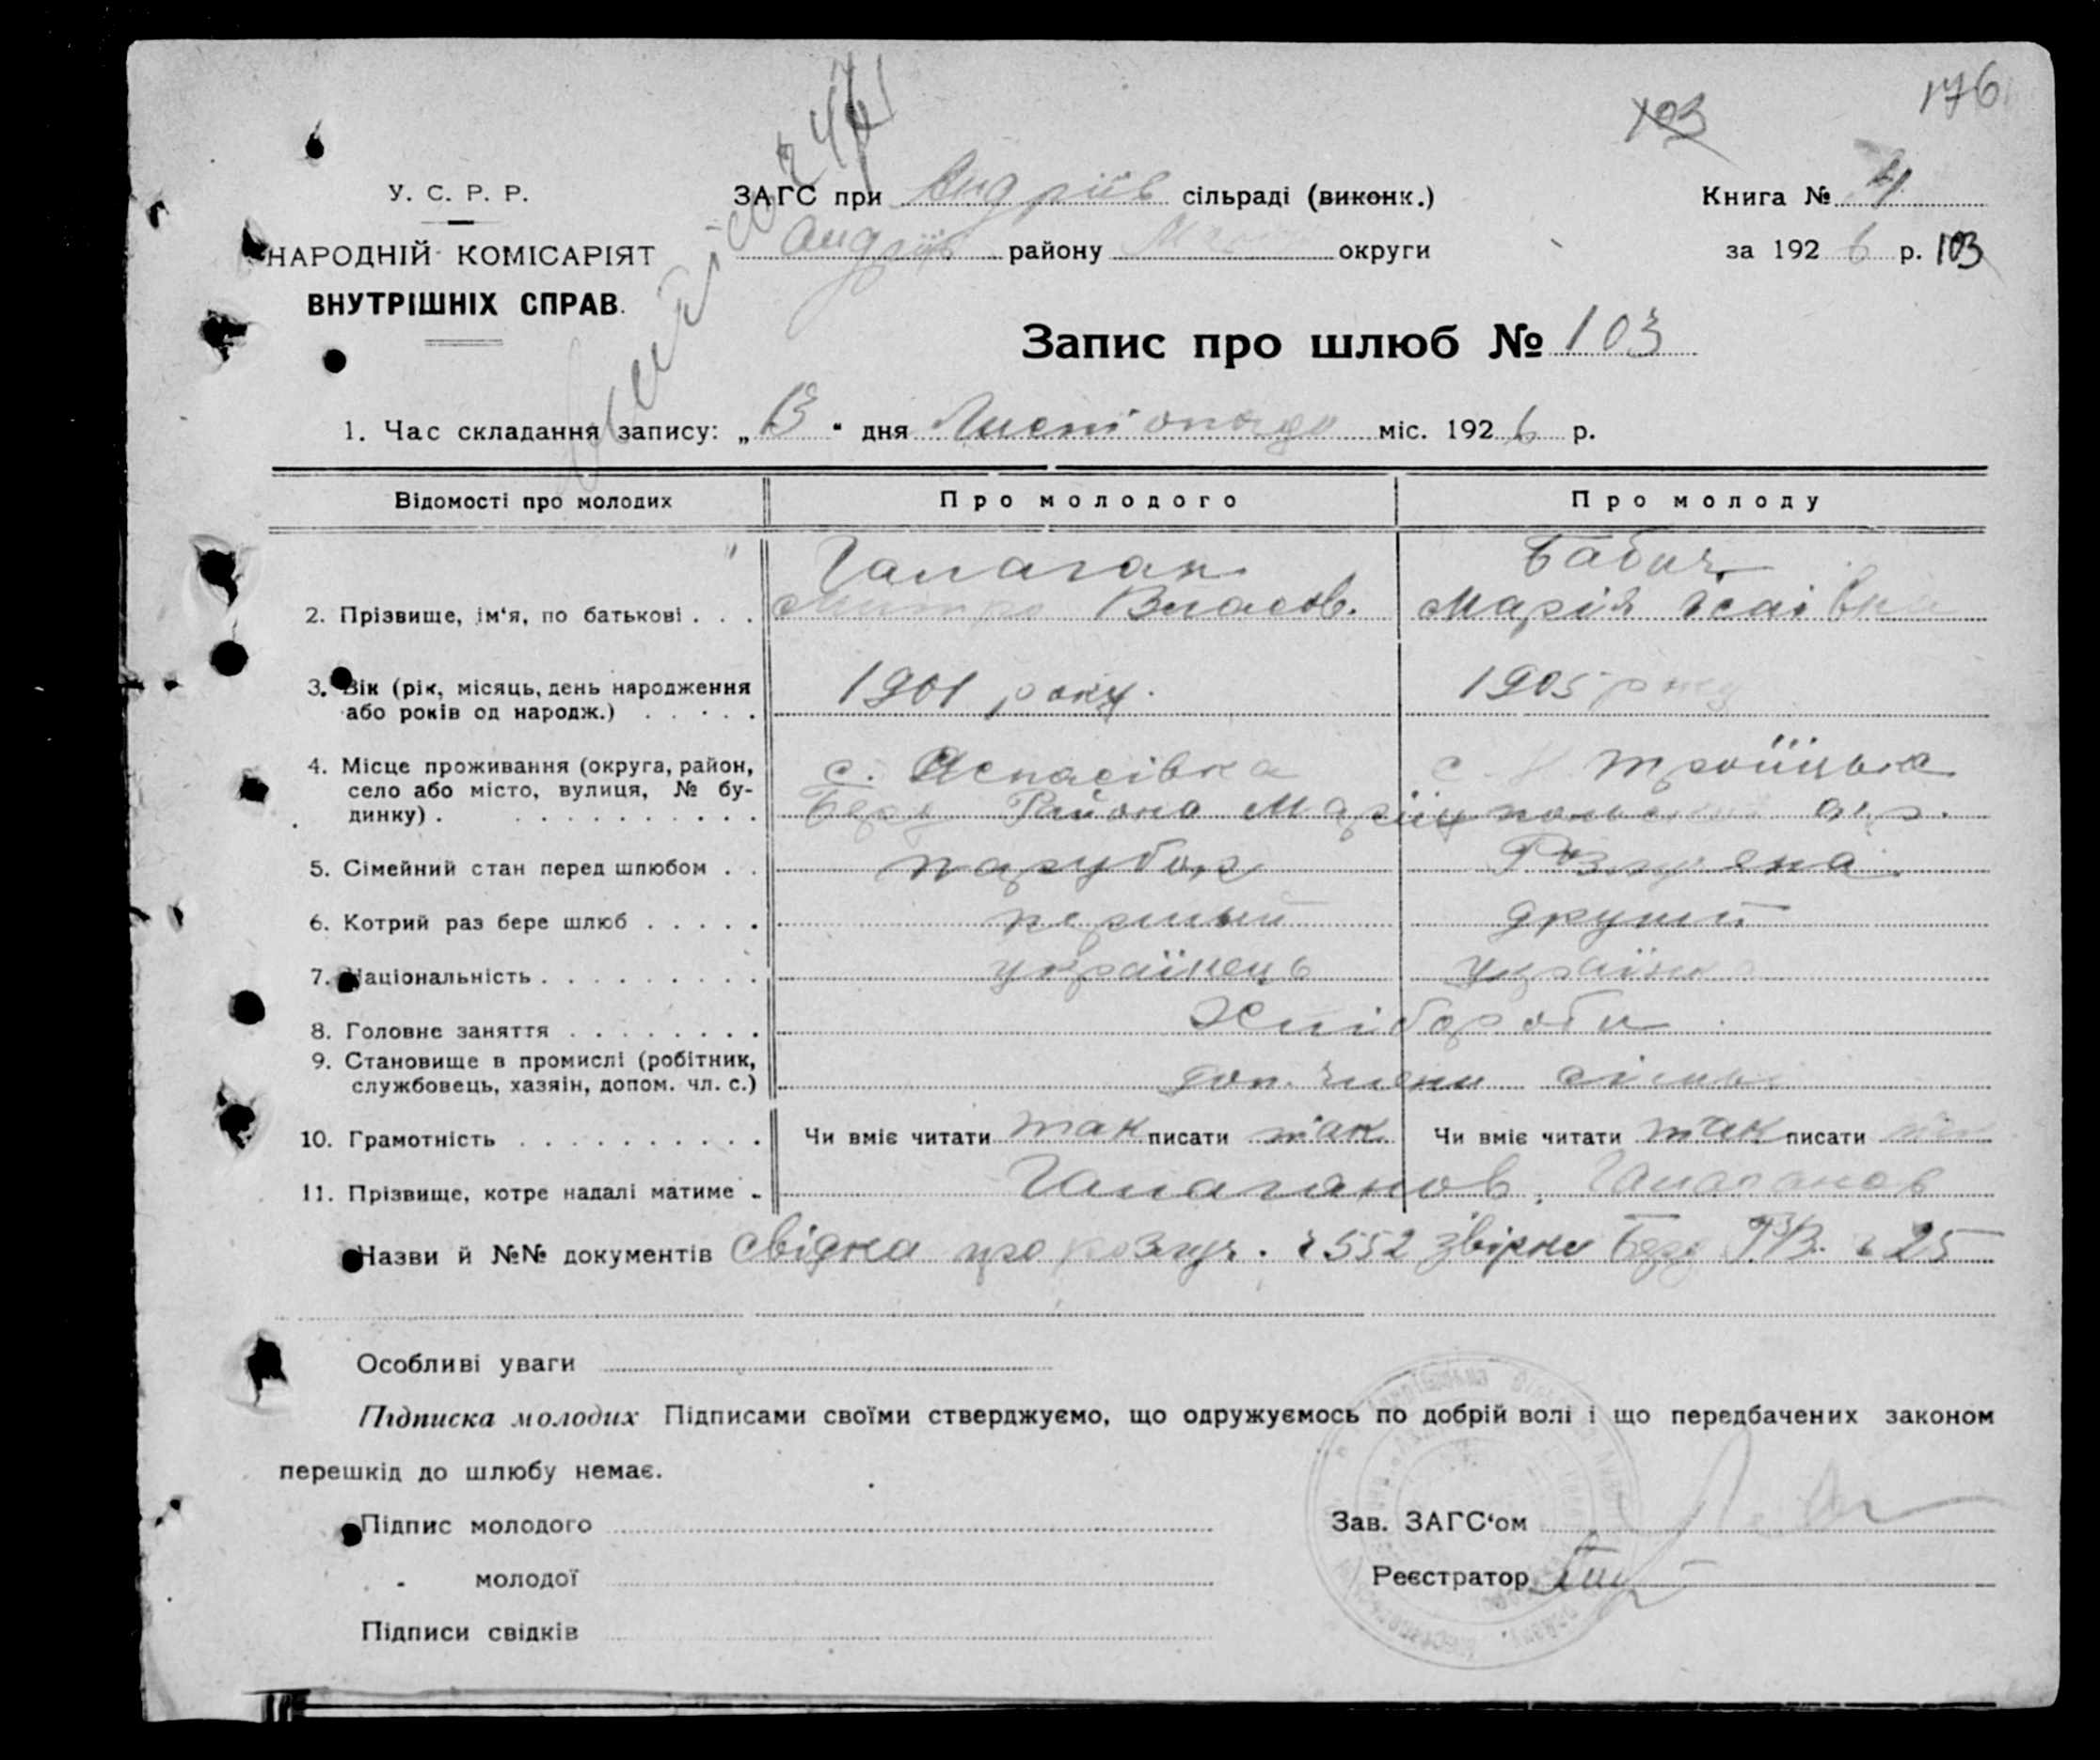 176
103
У. С. Р. Р.
НАРОДНІЙ КОМІСАРІЯТ
ВНУТРІШНІХ СПРАВ.
ЗАГС при Андріїв сільраді (виконк.)
Андріїв району округи
Книга № 4
за 1926 р. 103
Запис про шлюб № 103
1. Час складання запису: „13" дня Листопада міс. 1926 р.
Відомості про молодих Про молодого Про молоду
Галаган Бабич
2. Прізвище, ім'я, по батькові . . . Митро Власов. Марія Ісаівна
3. Вік (рік, місяць, день народження 1901 року. 1905 року
або років од народж.) . . . . .
4. Місце проживання (округа, район, с. Успасівка с. Троїцька
село або місто, вулиця, № бу-
динку) . . . . . . . . . . . Района Маріупольської окр.
5. Сімейний стан перед шлюбом . . парубок Розлучена
6. Котрий раз бере шлюб . . . . . первый другий
7. Національність . . . . . . . . . українець українка
8. Головне заняття . . . . . . . . Хлібороби
9. Становище в промислі (робітник,
службовець, хазяїн, допом. чл. с.) доп. члени сімьї
10. Грамотність . . . . . . . . . . Чи вміє читати так писати так Чи вміє читати так писати так
11. Прізвище, котре надалі матиме - Галаганов, Галаганов
Назви й №№ документів Свідка про розлуч. 552 звірки 25
Особливі уваги
Підписка молодих Підписами своїми стверджуємо, що одружуємось по добрій волі і що передбачених законом
перешкід до шлюбу немає.
Підпис молодого
Зав. ЗАГС'ом
" молодої
Реєстратор
Підписи свідків